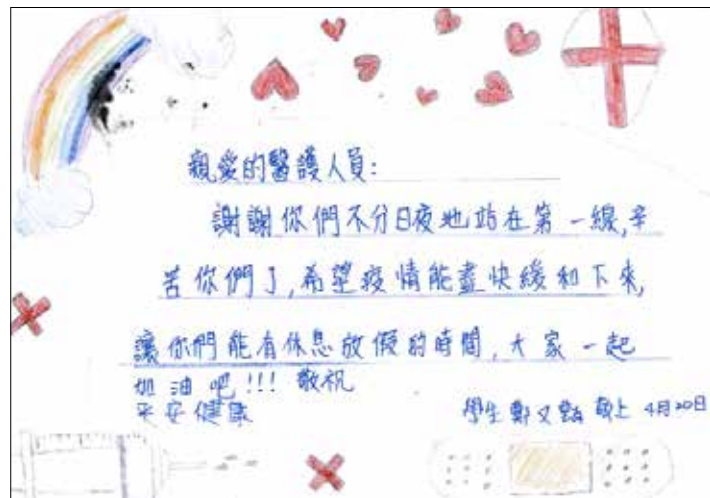 親愛的醫護人員:
謝謝你們不分日夜地站在第一線,辛
苦你們了,希望疫情能盡快緩和下來,
讓你們能有休息放假的時間,大家一起
加油吧!!! 敬祝
平安健康
學生鄭又甄 敬上 4月20日